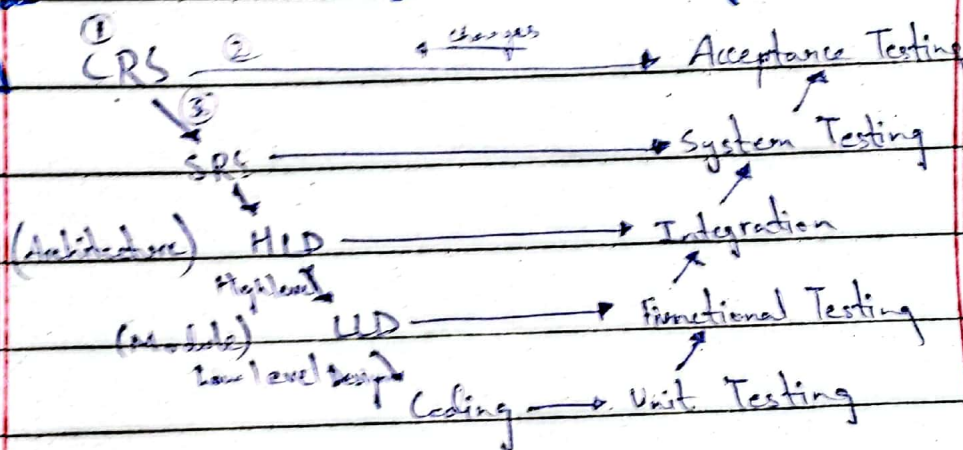 ① ② changes
CRS Acceptance Testing
③
SRS System Testing
(Architecture) HLD Integration
High level
(Module) LLD Functional Testing
Low level Design
Coding Unit Testing